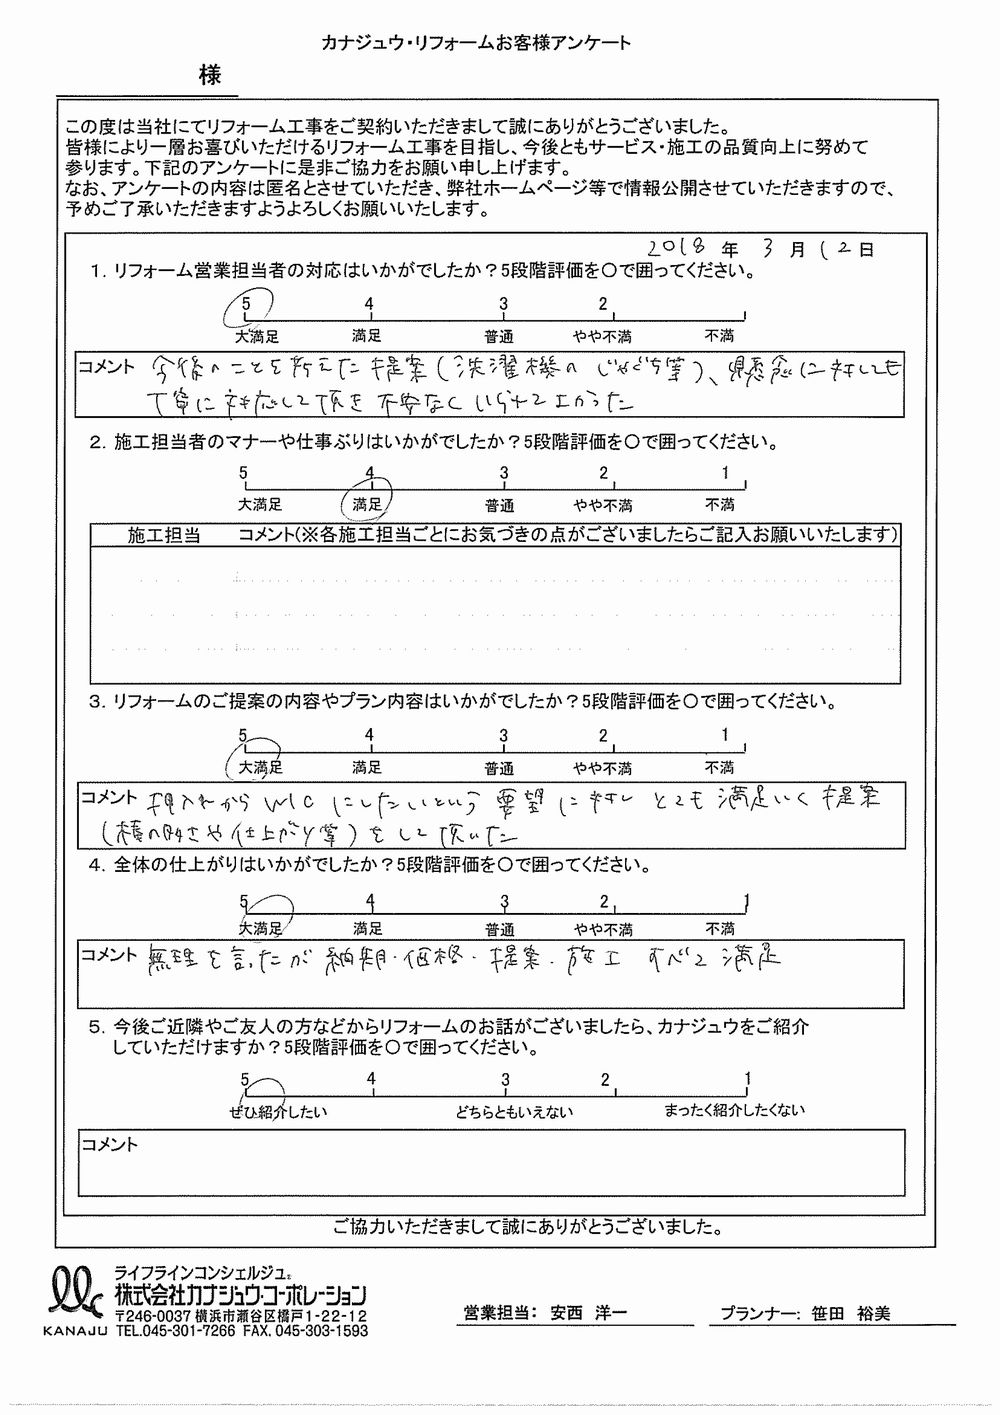 カナジュウ・リフォームお客様アンケート
様
この度は当社にてリフォーム工事をご契約いただきまして誠にありがとうございました。
皆様により一層お喜びいただけるリフォーム工事を目指し、今後ともサービス・施工の品質向上に努めて
参ります。下記のアンケートに是非ご協力をお願い申し上げます。
なお、アンケートの内容は匿名とさせていただき、弊社ホームページ等で情報公開させていただきますので、
予めご了承いただきますようよろしくお願いいたします。
2018 年 3 月 12 日
1. リフォーム営業担当者の対応はいかがでしたか？5段階評価を○で囲ってください。
5 4 3 2
大満足 満足 普通 やや不満 不満
コメント 今後のことを考えた提案(洗濯機の じゃぐち等)、懸念に対しても
丁寧に対応して頂き不安なく いられてよかった
2. 施工担当者のマナーや仕事ぶりはいかがでしたか？5段階評価を○で囲ってください。
5 4 3 2 1
大満足 満足 普通 やや不満 不満
施工担当 コメント(※各施工担当ごとにお気づきの点がございましたらご記入お願いいたします)
3. リフォームのご提案の内容やプラン内容はいかがでしたか？5段階評価を○で囲ってください。
5 4 3 2 1
大満足 満足 普通 やや不満 不満
コメント 押入れから WIC にしたいという 要望 に対し とても 満足いく 提案
(横の開きや仕上がり等)をして頂いた
4. 全体の仕上がりはいかがでしたか？5段階評価を○で囲ってください。
5 4 3 2 1
大満足 満足 普通 やや不満 不満
コメント 無理を言ったが 納期・価格・提案・施工 すべて 満足
5. 今後ご近隣やご友人の方などからリフォームのお話がございましたら、カナジュウをご紹介
していただけますか？5段階評価を○で囲ってください。
5 4 3 2 1
ぜひ紹介したい どちらともいえない まったく紹介したくない
コメント
ご協力いただきまして誠にありがとうございました。
ライフラインコンシェルジュ
株式会社カナジュウ・コーポレーション
〒246-0037 横浜市瀬谷区橋戸1-22-12
KANAJU TEL.045-301-7266 FAX. 045-303-1593
営業担当: 安西 洋一
プランナー: 笹田 裕美